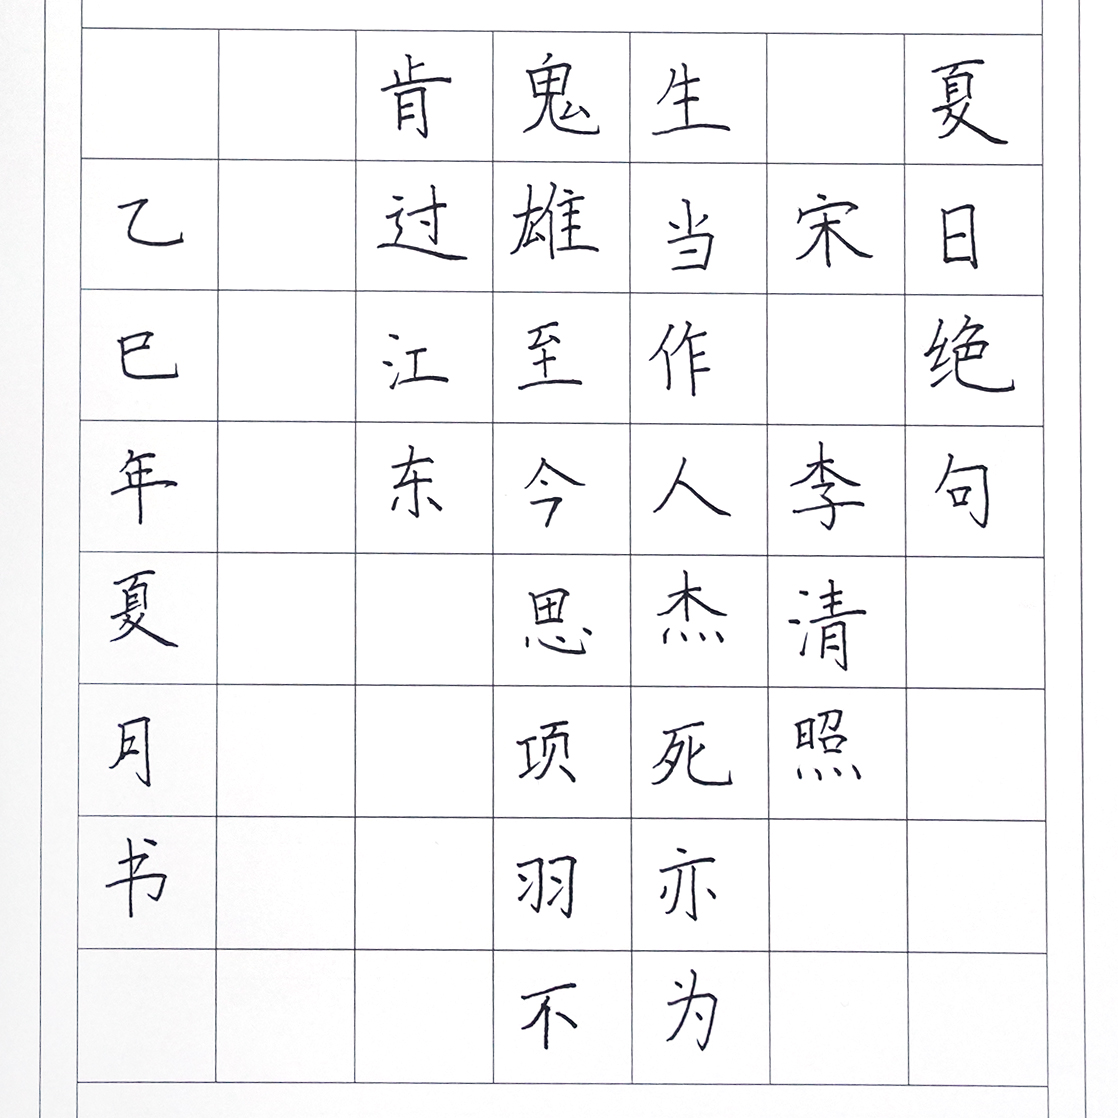 夏日绝句
宋 李清照
生当作人杰死亦为
鬼雄至今思项羽不
肯过江东
乙巳年夏月书